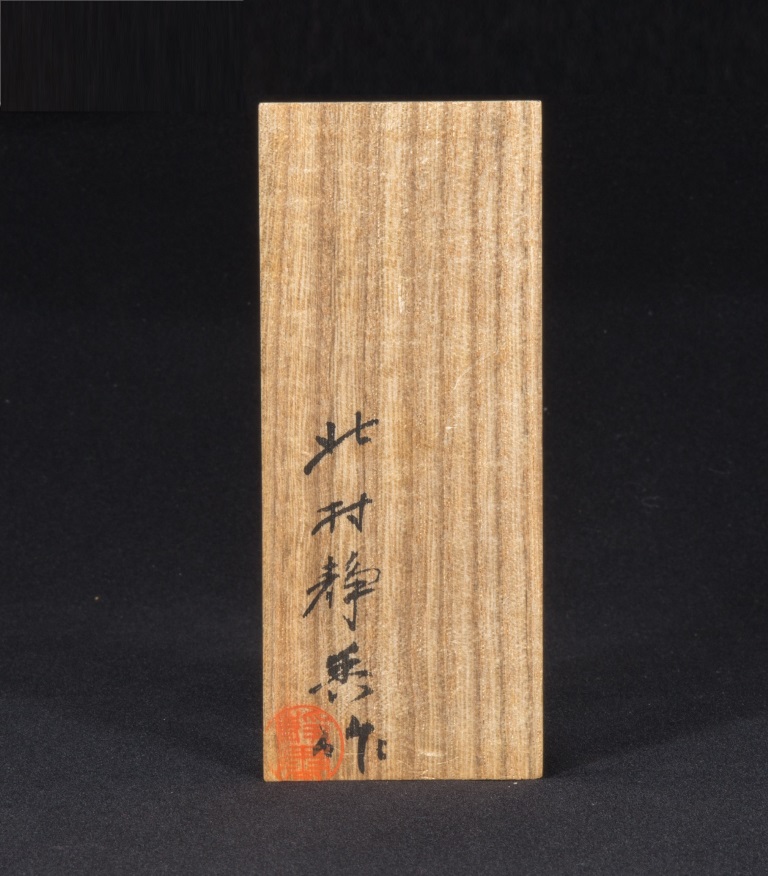 北村静香作